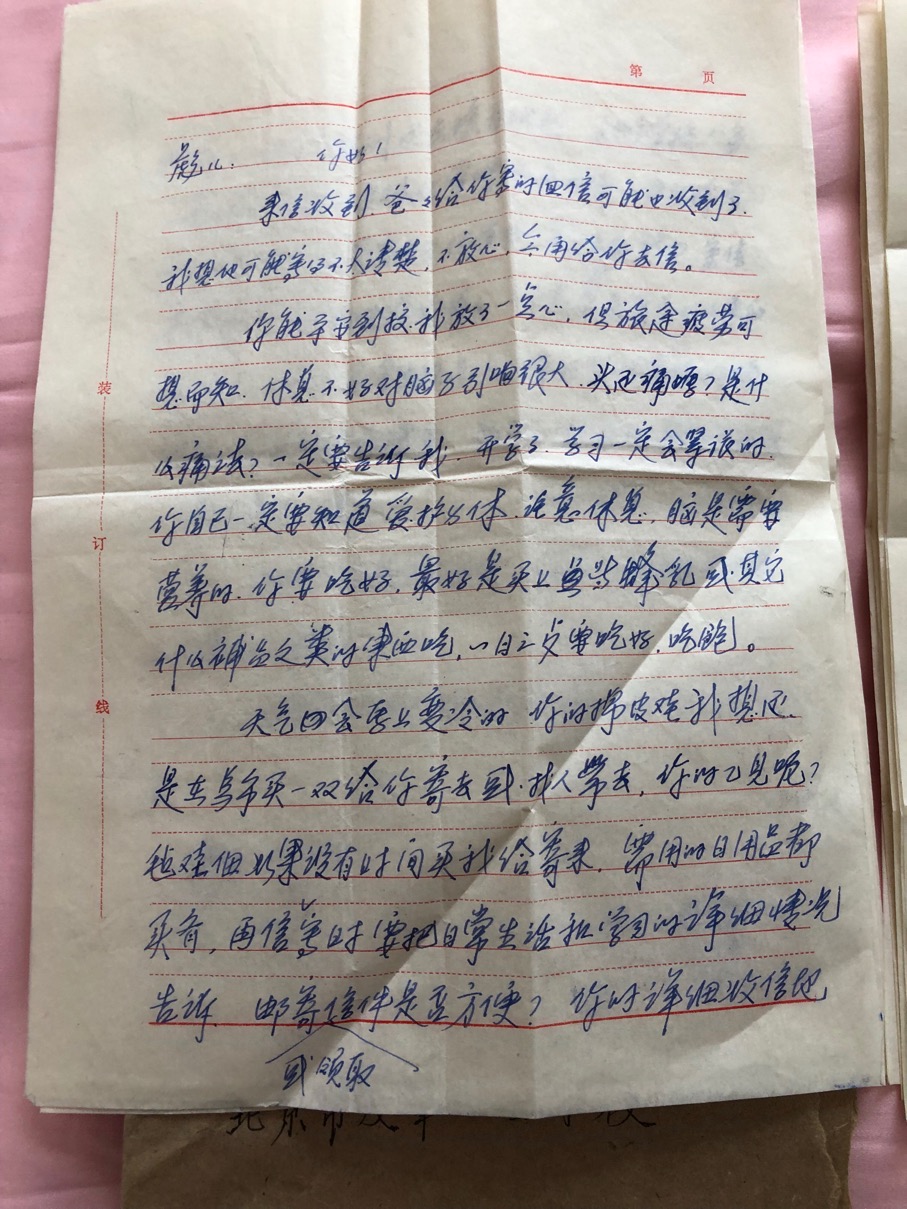 第 页
儿: 你好!
来信收到, 爸爸给你寄的回信可能也收到了.
我想他可能写的不大清楚, 不放心, 今再给你去信。
你能平安到校, 我放了一点心, 但旅途疲劳可
想而知, 休息不好对脑子影响很大, 头还痛吗? 是什
么痛法? 一定要告诉我, 开学了, 学习一定会紧张的,
你自己一定要知道爱护身体, 注意休息, 脑是需要
营养的, 你要吃好, 最好是买上些蜂乳或其它
什么补品之类的东西吃, 一日三要吃好, 吃饱。
天气会马上变冷的 你的棉皮鞋我想还
是在乌市买一双给你寄去或找人带去, 你的意见呢?
毡如果没有时间买我给寄来, 需用的日用品都
买齐, 再信写时要把日常生活和学习的详细情况
告诉. 邮寄信件是否方便? 你的详细收信地
或领取
装
订
线
北京市